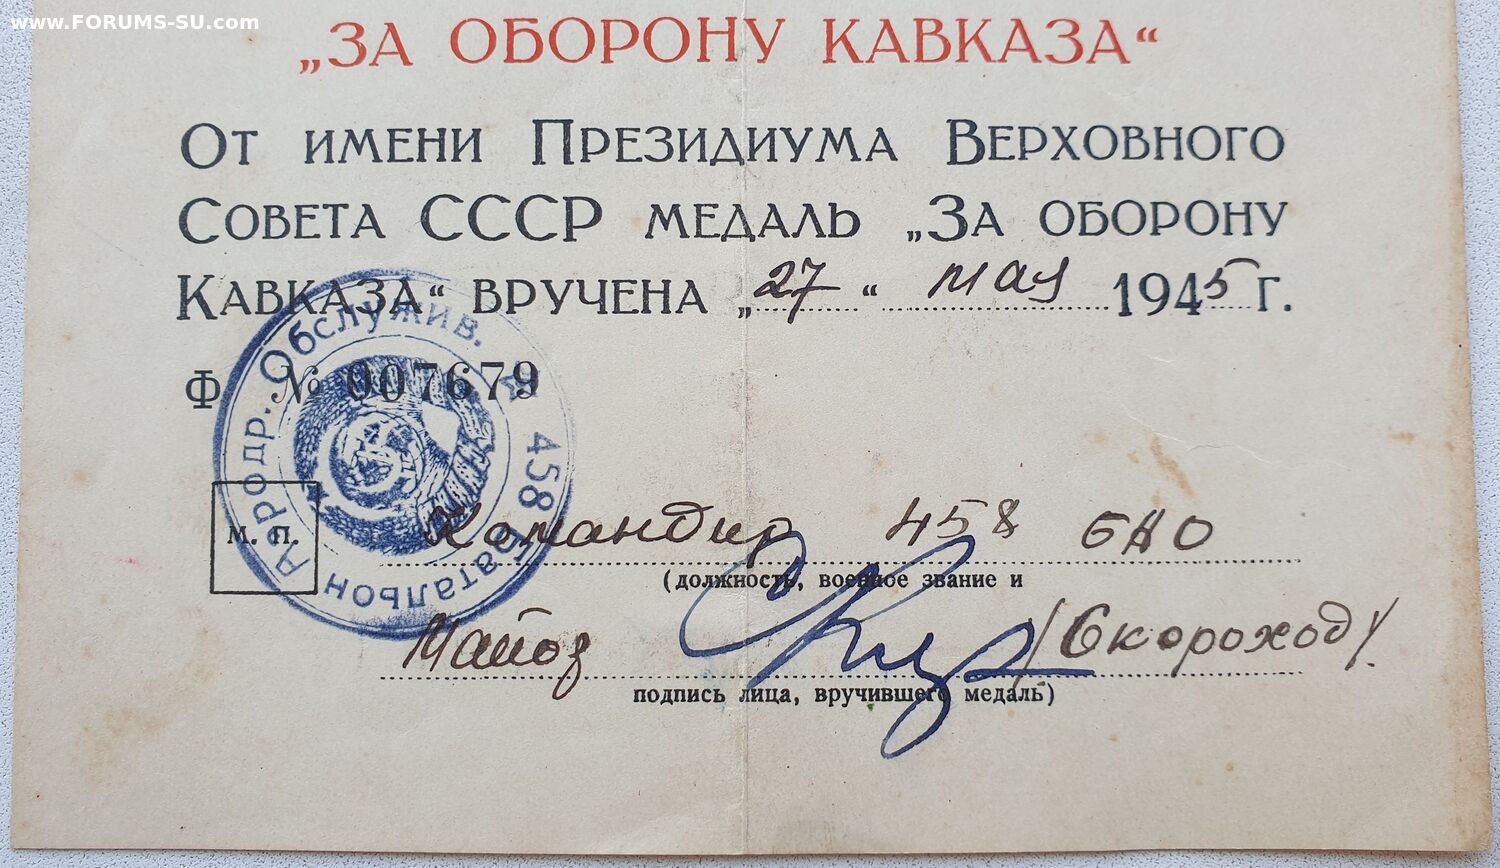 www.FORUMS-SU.com
„ЗА ОБОРОНУ КАВКАЗА“
От имени Президиума Верховного
Совета СССР медаль „За оборону
Кавказа“ вручена „27“ мая 1945 г.
Ф № 007679
Аэродр. Обслужив. ☆ 458 Батальон
м. п.
Командир 458 БАО
(должность, военное звание и
Майор /Скороход/.
подпись лица, вручившего медаль)